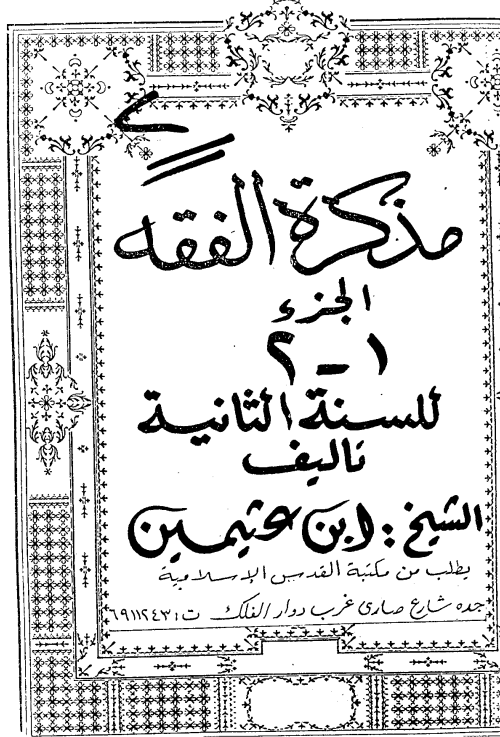 مذكرة الفقه
الجزء
١ - ٢
للسنة الثانية
تاليف
الشيخ : ابن عثيمين
يطلب من مكتبة القدس الاسلامية
جده شارع صارى غرب دوار الفلك ت : ٦٩١١٢٤٣